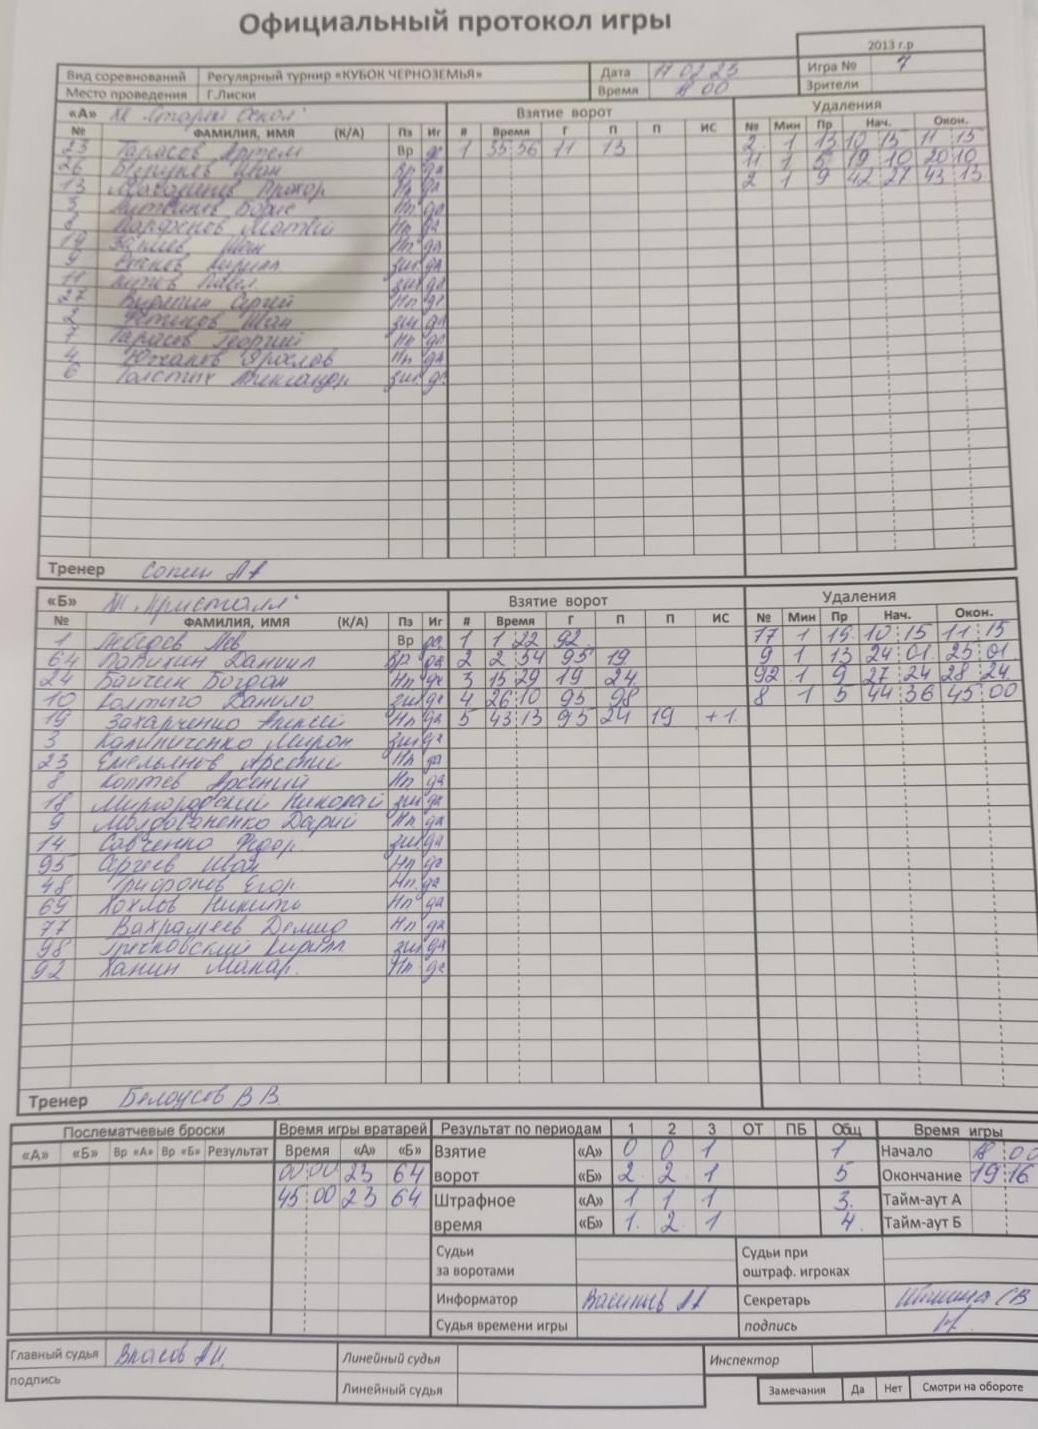 Официальный протокол игры
2013 г.р
Вид соревнований Регулярный турнир «КУБОК ЧЕРНОЗЕМЬЯ» Дата 17 02 23 Игра № 7
Место проведения Г.Лиски Время 18 00 Зрители
«А» ХК "Старый Оскол" Взятие ворот Удаления
№ ФАМИЛИЯ, ИМЯ (К/А) Пз Иг # Время Г П П ИС № Мин Пр Нач. Окон.
23 Тарасов Артем Вр да 1 35 56 11 13 2 1 13 10 15 11 15
26 Иван Вр да 11 1 5 19 10 20 10
13 Прохор Нп да 2 1 9 42 27 43 13
3 Борис Нп да
2 Парфенов Матвей Нп да
19 Иван Нп да
9 Кирилл защ да
11 Павел защ да
27 Сергей Нп да
2 Иван защ да
7 Тарасов Георгий Нп да
4 Ярослав Нп да
6 Толстых Александр защ да
Тренер Сопин АА
«Б» ХК "Кристалл" Взятие ворот Удаления
№ ФАМИЛИЯ, ИМЯ (К/А) Пз Иг # Время Г П П ИС № Мин Пр Нач. Окон.
1 Лебедев Лев Вр да 1 1 22 92 17 1 19 10 15 11 15
64 Папихин Даниил Вр да 2 2 54 95 19 9 1 13 24 01 25 01
24 Байчин Богдан Нп да 3 15 29 19 24 92 1 9 27 24 28 24
10 Колтыго Данило защ да 4 26 10 95 98 8 1 5 44 36 45 00
19 Захарченко Алексей Нп да 5 43 13 95 24 19 +1
3 Калиниченко Мирон защ да
23 Емельянов Арсений Нп да
8 Коптев Арсений Нп да
18 Миргородский Николай защ да
9 Молдованенко Дарий Нп да
14 Савченко Федор защ да
95 Сергеев Иван Нп да
48 Трифонов Егор Нп да
69 Хохлов Никита Нп да
77 Вахрамеев Демид Нп да
98 Гречковский Кирилл защ да
92 Ханин Макар Нп да
Тренер Белоусов В В
Послематчевые броски Время игры вратарей Результат по периодам 1 2 3 ОТ ПБ Общ Время игры
«А» «Б» Вр «А» Вр «Б» Результат Время «А» «Б» Взятие «А» 0 0 1 1 Начало 18 00
00 00 23 64 ворот «Б» 2 2 1 5 Окончание 19 16
45 00 23 64 Штрафное «А» 1 1 1 3 Тайм-аут А
время «Б» 1 2 1 4 Тайм-аут Б
Судьи за воротами Судьи при оштраф. игроках
Информатор Васильев АА Секретарь СВ
Судья времени игры подпись
Главный судья Власов АИ Линейный судья Инспектор
подпись Линейный судья Замечания Да Нет Смотри на обороте